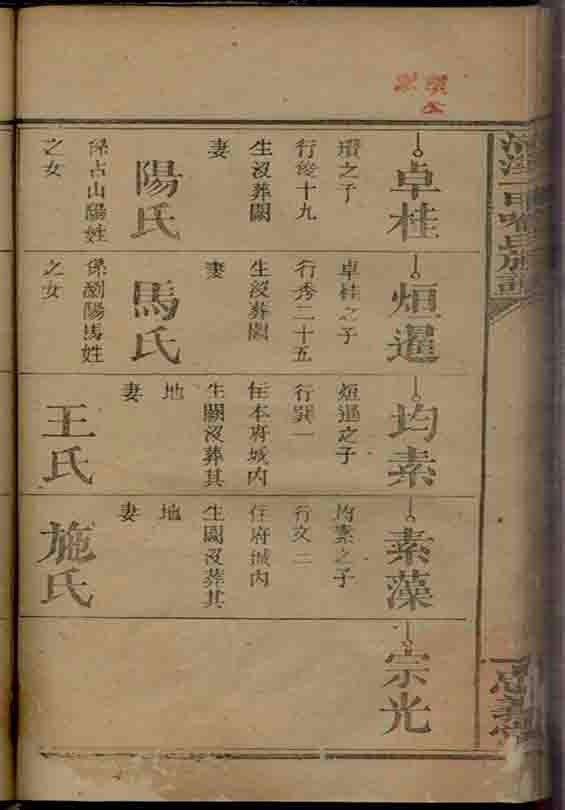 卓桂
瓚之子
行後十九
生沒葬闕
妻
陽氏
係占山陽姓
之女
烜暹
卓桂之子
行秀二十五
生沒葬闕
妻
馬氏
係瀏陽馬姓
之女
均素
烜暹之子
行巽一
住本府城內
生闕沒葬其
地
妻
王氏
素藻
均素之子
行文二
住府城內
生闕沒葬其
地
妻
施氏
宗光